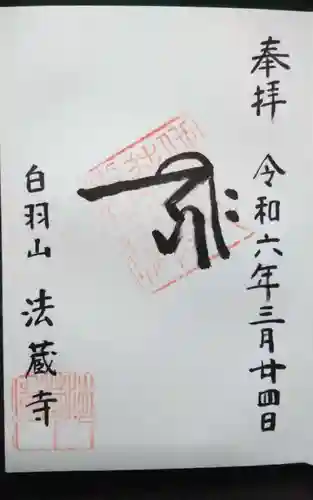 奉拝
令和六年三月廿四日
白羽山
法蔵寺